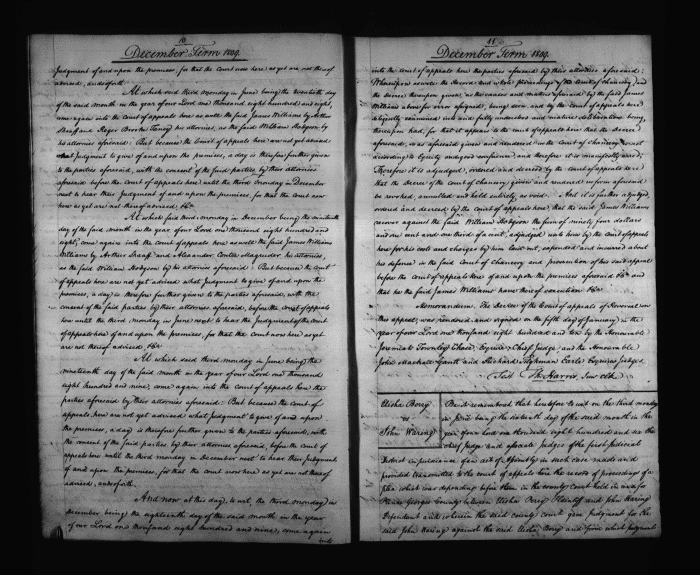 10
December Term 1809.
Judgment of and upon the premises, for that the Court now here as yet are not thereof
advised, and so forth
At which said third monday in June being the twentieth day
of the said month in the year of our Lord one thousand eight hundred and eight,
come again into the court of appeals here as well the said James Williams by Arthur
Shaaff and Roger Brooke Taney his attornies, as the said William Hodgson by
his attornies aforesaid: But because the Court of appeals here are not yet advised
what Judgment to give of and upon the premises, a day is therefore further given
to the parties aforesaid, with the consent of the said parties by their attornies
aforesaid before the court of appeals here until the third monday in December
next to hear their Judgment of and upon the premises, for that the court now
here as yet are not thereof advised, &c.
At which said third monday in December being the nineteenth
day of the said month in the year of our Lord one thousand eight hundred and
eight, come again into the court of appeals here as well the said James Williams
Williams by Arthur Shaaff and Alexander Contee Magruder his attornies,
as the said William Hodgson by his attornies aforesaid: But because the Court
of appeals here are not yet advised what Judgment to give of and upon the
premises, a day is therefore further given to the parties aforesaid, with the
consent of the said parties by their attornies aforesaid, before the court of appeals
here until the third monday in June next to hear the Judgment of the court
of appeals here of and upon the premises, for that the court now here as yet
are not thereof advised &c.
At which said third monday in June being the
nineteenth day of the said month in the year of our Lord one thousand
eight hundred and nine, come again into the court of appeals here the
parties aforesaid by their attornies aforesaid: But because the court of
appeals here are not yet advised what Judgment to give of and upon
the premises, a day is therefore further given to the parties aforesaid, with
the consent of the said parties by their attornies aforesaid, before the court of
appeals here until the third monday in december next to hear their Judgment
of and upon the premises, for that the court now here as yet are not thereof
advised, and so forth.
And now at this day, to wit, the third monday in
december, being the eighteenth day of the said month in the year
of our Lord one thousand eight hundred and nine, come again
into
11
December Term 1809.
into the court of appeals here the parties aforesaid by their attornies aforesaid:
Whereupon as well the Record and whole proceedings of the court of chancery and
the decree thereupon given, as the causes and matters aforesaid by the said James
Williams above for error assigned, being seen and by the court of appeals here
diligently examined into and fully understood and mature deliberation being
thereupon had, for that it appears to the court of appeals here that the decree
aforesaid, was aforesaid given and rendered in the court of Chancery is not
according to Equity and good conscience, and therefore it is manifestly erred;
Therefore it is adjudged, ordered and decreed by the court of appeals here
that the decree of the court of chancery given and rendered in form aforesaid
be revoked, annulled and held entirely as void. And it is further adjudged,
ordered and decreed by the court of appeals here, that the said James Williams
recover against the said William Hodgson the sum of ninety four dollars
and one cent and one third of a cent, adjudged unto him by the court of appeals
here for his costs and charges by him laid out, expended and incurred about
his defence in the said Court of Chancery and prosecution of his said appeal
before the court of appeals here of and upon the premises aforesaid &c. and
that he the said James Williams have thereof execution &c.
Memorandum. The Decree of the Court of appeals of Reversal on
this appeal, was rendered and signed on the fifth day of January in the
year of our Lord one thousand eight hundred and ten by the Honourable
Jeremiah Townley Chase, Esquire, Chief Judge and the Honourable
John Mackall Gantt and Richard Tilghman Earle Esquires Judges
Test Th. Harris, Junr clk
Elisha Berry
vs
John Waring
Be it remembered that heretofore to wit on the third monday
in June being the sixteenth day of the said month in the
year of our Lord one thousand eight hundred and six the
chief Judge and associate Judges of the first Judicial
District in pursuance of an act of assembly in such case made and
provided transmitted to the court of appeals here the record of proceedings of a
plea which was depending before them in the county court held in and for
Prince Georges County between Elisha Berry Plaintiff and John Waring
Defendant and wherein the said county court gave judgment for the
said John Waring against the said Elisha Berry and from which judgment